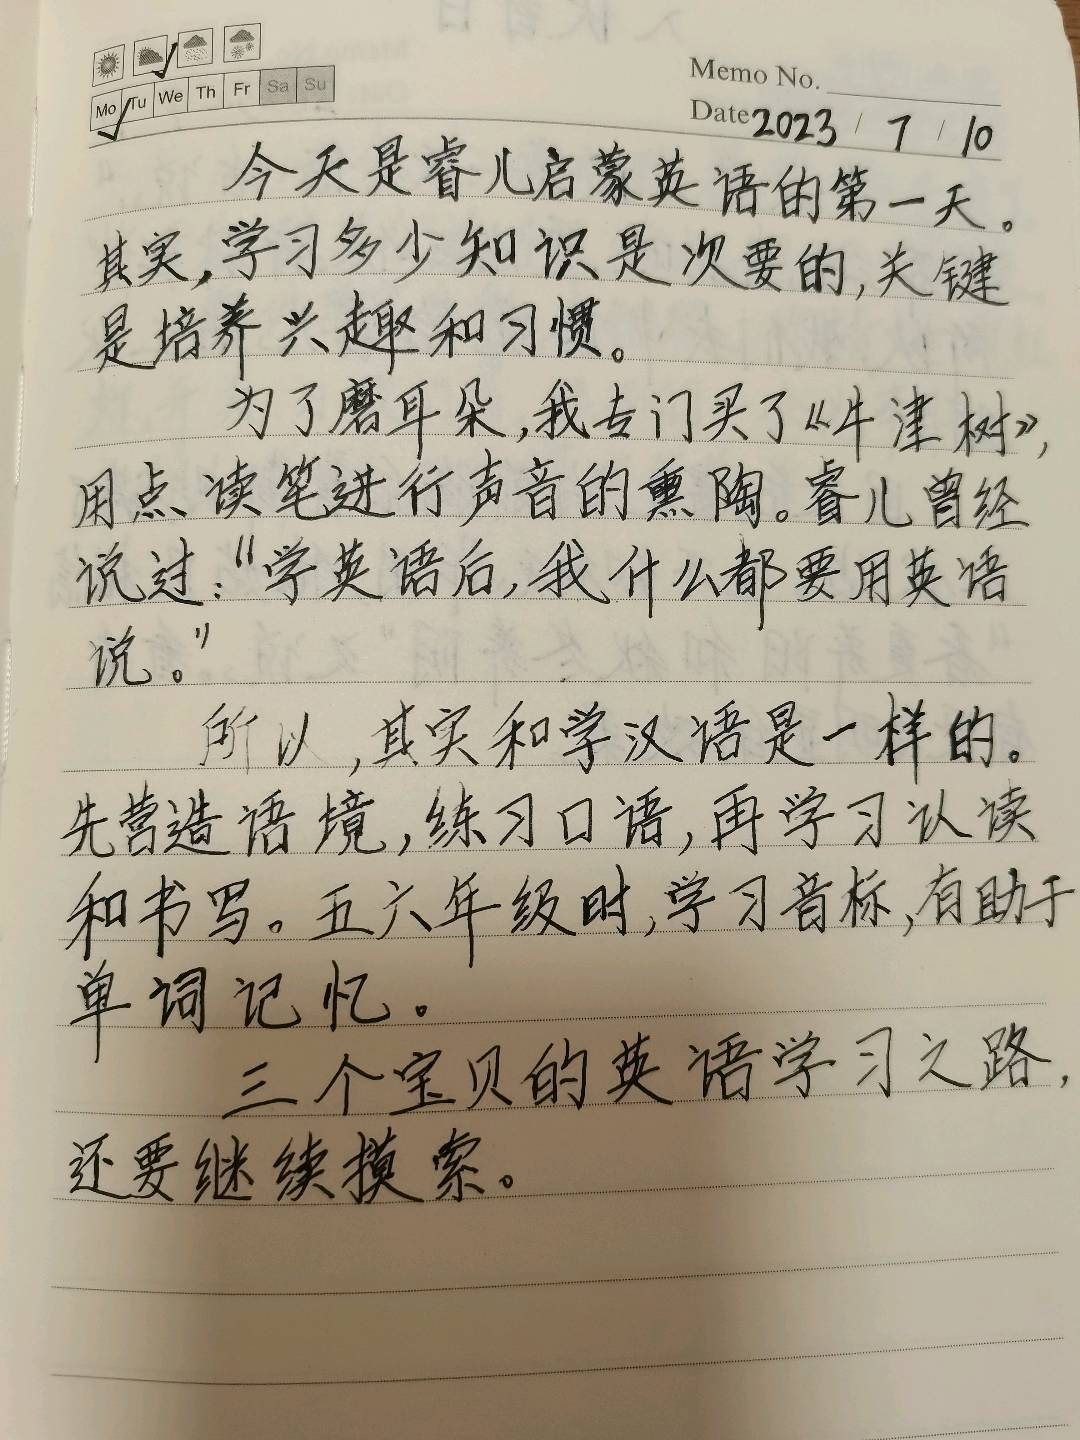 Mo Tu We Th Fr Sa Su
Memo No.
Date 2023 / 7 / 10
今天是睿儿启蒙英语的第一天。
其实,学习多少知识是次要的,关键
是培养兴趣和习惯。
为了磨耳朵,我专门买了《牛津树》,
用点读笔进行声音的熏陶。睿儿曾经
说过:“学英语后,我什么都要用英语
说。”
所以,其实和学汉语是一样的。
先营造语境,练习口语,再学习认读
和书写。五六年级时,学习音标,有助于
单词记忆。
三个宝贝的英语学习之路,
还要继续摸索。